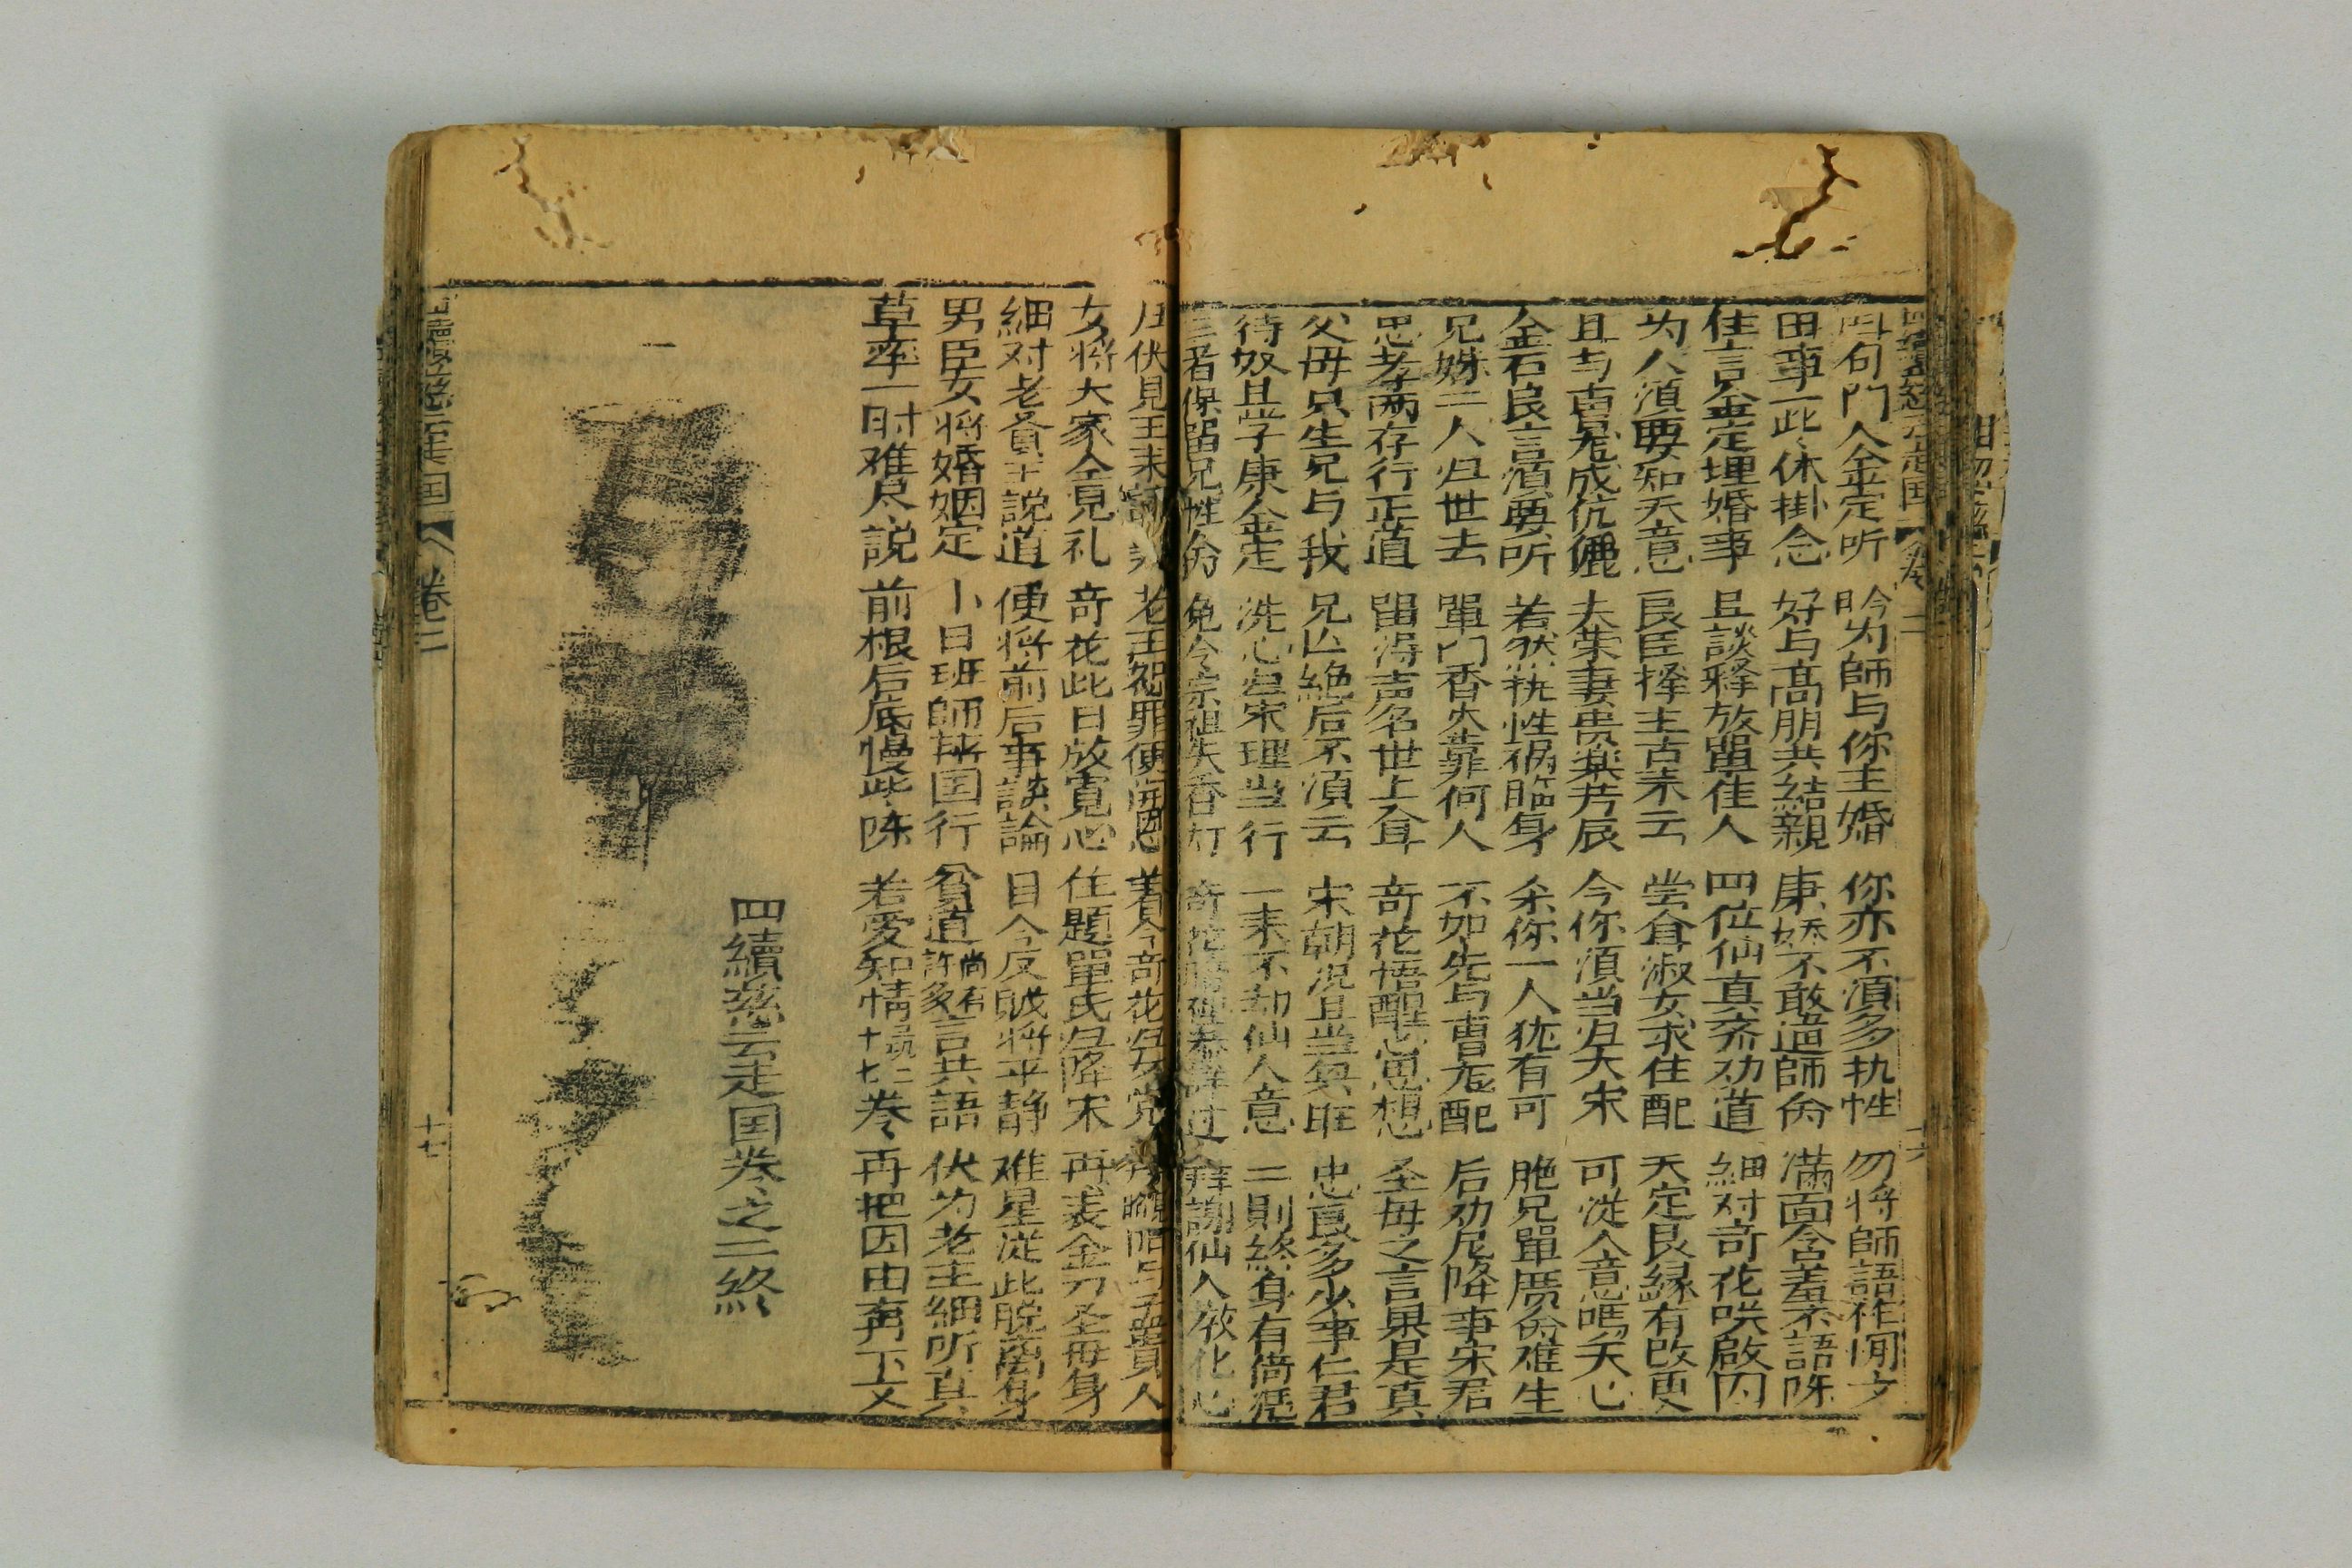 四句門人金定听 吟为師与你主婚 你亦不湏多执性 勿将師語作闻文
田事一此休掛念 好与高朋共結親 康嬌不敢違師命 满面含羞不語陈
住言金定埋婚事 且談释放單佳人 四位仙真齐劝道 細对奇花哄啟因
为人湏要知天意 良臣择主古来云 尝食淑女求住配 天定良緣有改更
且与曹彪成伉儷 夫荣妻贵楽芳辰 今你湏当归大宋 可従人意嗎天心
金石良言湏要听 若然执性祸臨身 杀你一人犹有可 胞兄單厉命难生
兄姝二人归世去 單门香火靠何人 不如先与曹彪配 后劝尼降事宋君
忠孝两存行正道 留得声名世上耷 奇花悟醒心思想 圣母之言果是真
父母只生兄与我 兄亾絶后不湏云 宋朝况且當興旺 忠良多少事仁君
待奴且学康金定 洗心归宋理当行 一来不刼仙人意 二則終身有倚凴
三者保留兄性命 免令宗祖失香灯 奇花 过 拜謝仙人敎化心
伏見王来 老王恕罪便開恩 着令奇花归女党
女将大家全見礼 奇花此日放寛心 住題單氏归降宋 再表金刀圣母身
細对老賢王説道 便将前后事談論 目今反賊将平静 难星從此脱离身
男臣女将婚姻定 卜日班師菶国行 貧道尚有許多言共語 伏为老王細听真
草率一时难尽説 前根后底慢些陈 若爱知情觀十七卷 再把因由再下文
四續慈云走国卷之二終
四續慈云走国 卷二 十七
四續慈云走国 卷二 十六